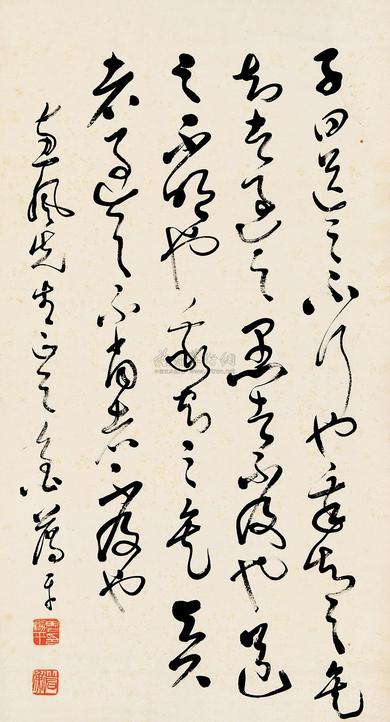 子曰道之不行也我知之矣
知者过之愚者不及也道
之不明也我知之矣贤
者过之不肖者不及也
先生正之